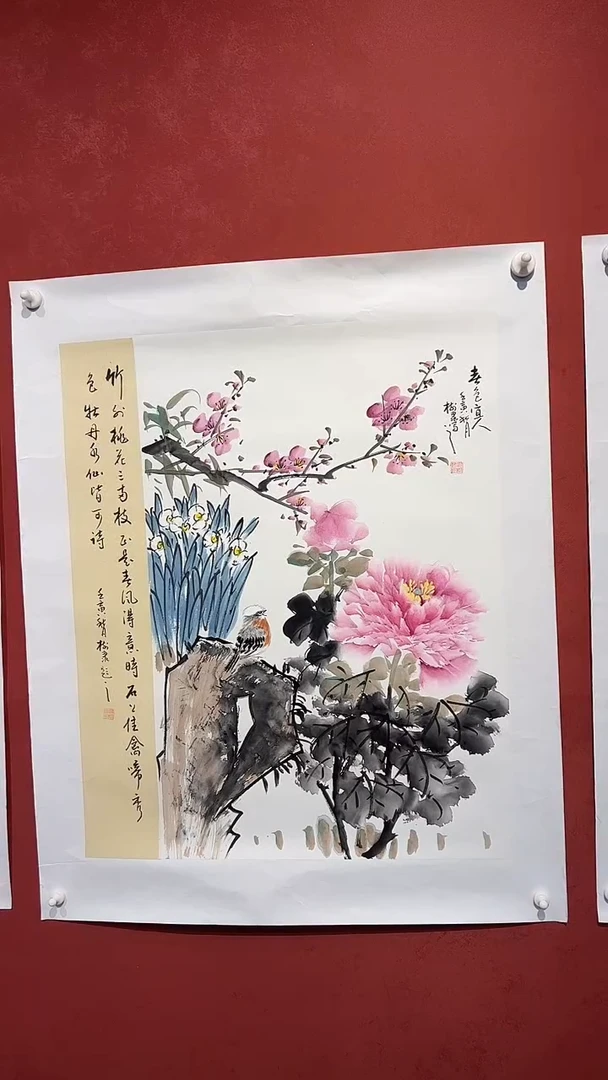 春色宜人
壬寅秋月
竹外桃花三两枝正是春风得意时石上佳禽啼秀
色牡丹水仙皆可诗
壬寅秋月